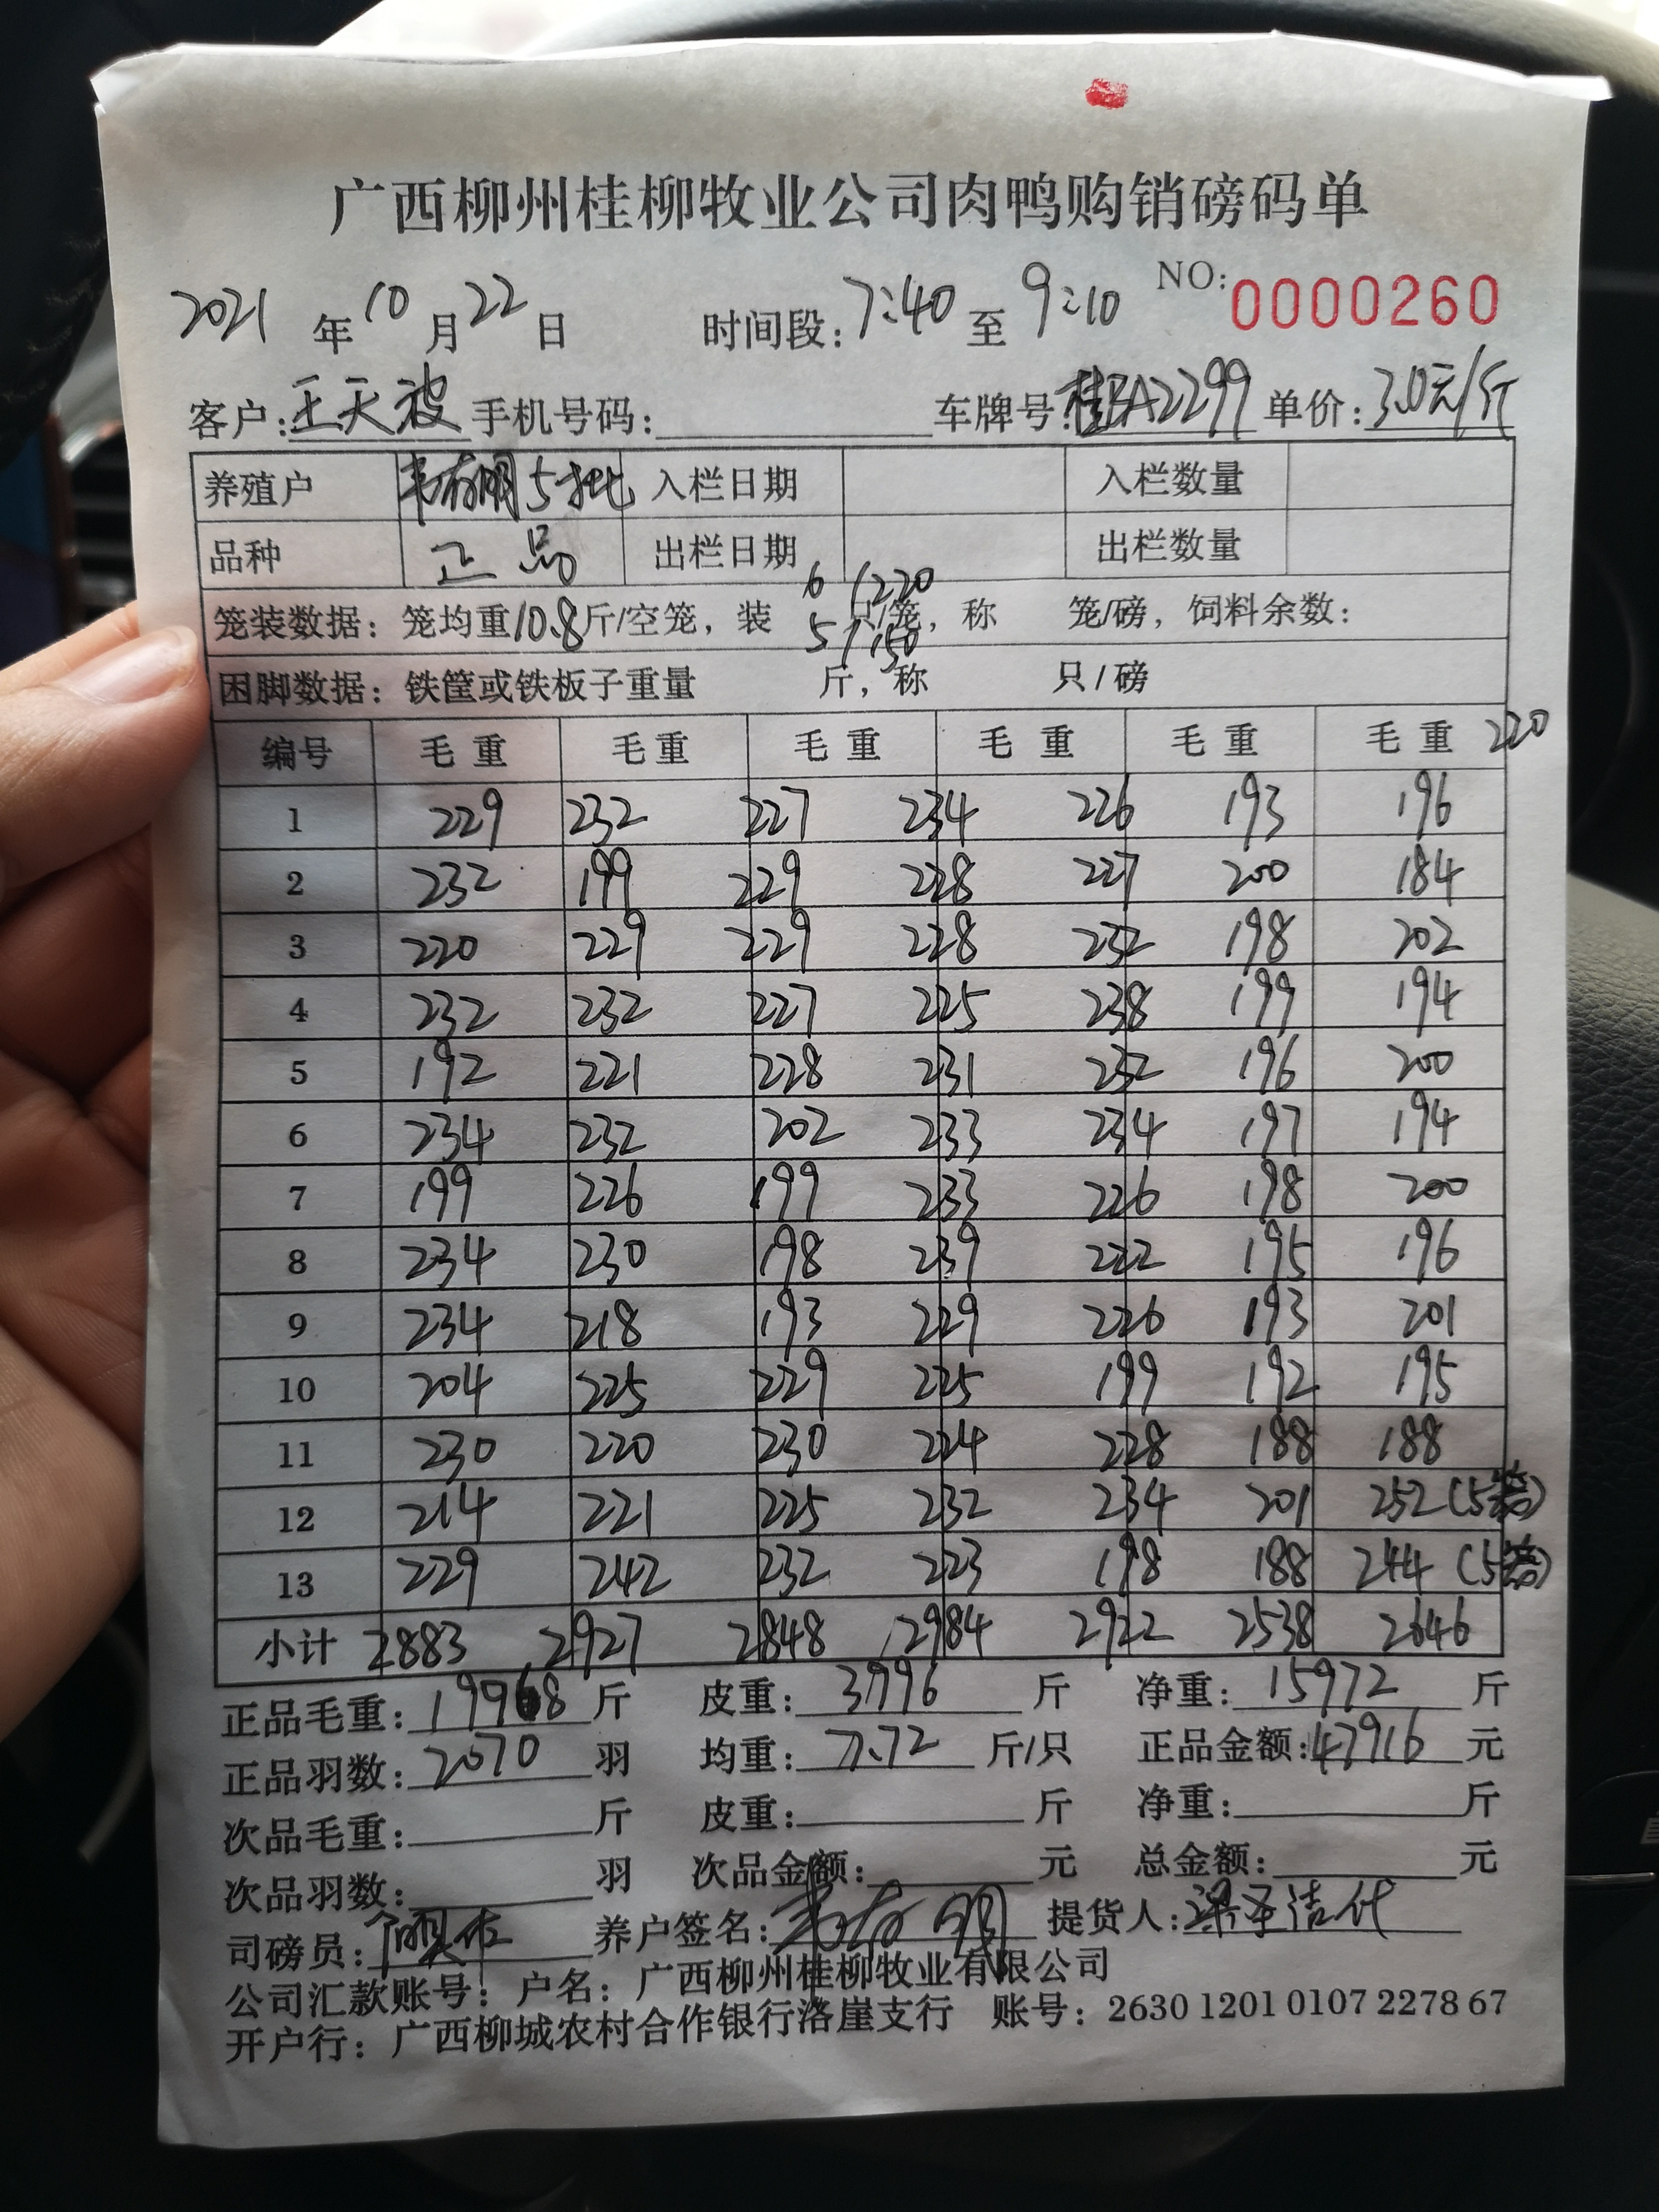 广西柳州桂柳牧业公司肉鸭购销磅码单
2021 年 10 月 22 日 时间段: 7:40 至 9:10 NO: 0000260
客户: 王天波 手机号码: 车牌号: 桂BA2299 单价: 3.0元/斤
养殖户 韦友明5批 入栏日期 入栏数量
品种 正品 出栏日期 出栏数量
6 /220
笼装数据: 笼均重10.8斤/空笼, 装 只/笼, 称 笼/磅, 饲料余数:
5 / 150
困脚数据: 铁筐或铁板子重量 斤, 称 只/磅
编号 毛重 毛重 毛重 毛重 毛重 毛重 220
1 229 232 227 234 226 193 196
2 232 199 229 228 227 200 184
3 220 229 229 228 232 198 202
4 232 232 227 225 238 199 194
5 192 221 228 231 232 196 200
6 234 232 202 233 234 197 194
7 199 226 199 233 226 198 200
8 234 230 198 239 222 195 196
9 234 218 193 229 226 193 201
10 204 225 229 225 199 192 195
11 230 220 230 224 228 188 188
12 214 221 225 232 234 201 252 (5笼)
13 229 242 232 223 198 188 244 (5笼)
小计 2883 2927 2848 2984 2922 2538 2646
正品毛重: 19968 斤 皮重: 3996 斤 净重: 15972 斤
正品羽数: 2070 羽 均重: 7.72 斤/只 正品金额: 47916 元
次品毛重: 斤 皮重: 斤 净重: 斤
次品羽数: 羽 次品金额: 元 总金额: 元
司磅员: 养户签名: 韦友明 提货人: 代
公司汇款账号: 户名: 广西柳州桂柳牧业有限公司
开户行: 广西柳城农村合作银行洛崖支行 账号: 2630 1201 0107 2278 67